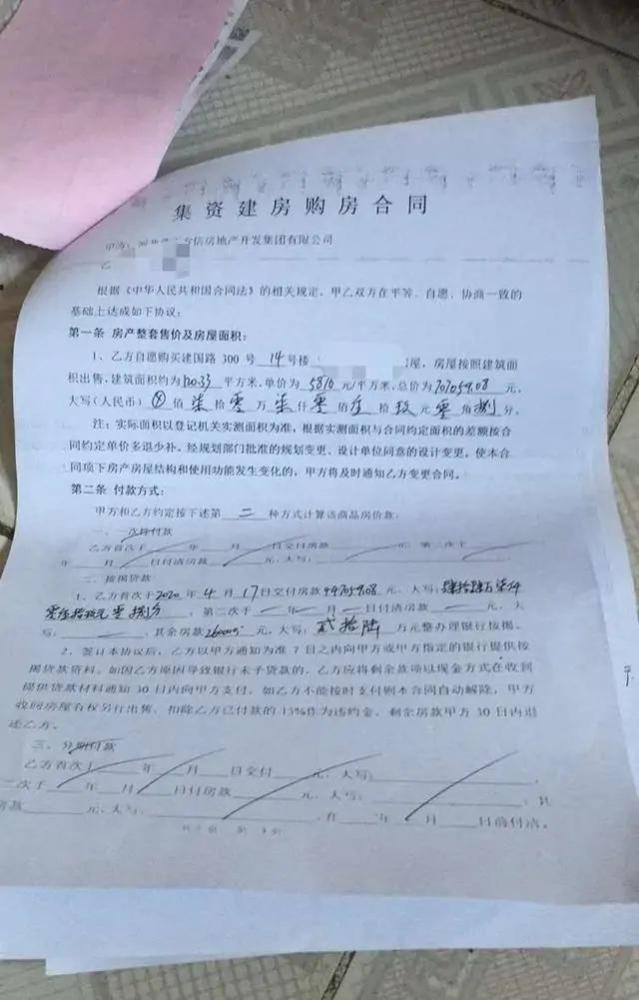 集资建房购房合同
甲方: 房地产开发集团有限公司
乙
根据《中华人民共和国合同法》的相关规定，甲乙双方在平等、自愿、协商一致的
基础上达成如下协议：
第一条 房产整套售价及房屋面积：
1、乙方自愿购买建国路 300 号 14 号楼 屋，房屋按照建筑面
积出售，建筑面积约为 平方米，单价为 5810 元/平方米，总价为 707059.08 元，
大写（人民币） ⊗ 佰 柒 拾 零 万 柒 仟 零 佰 伍 拾 玖 元 零 角 捌 分。
注：实际面积以登记机关实测面积为准，根据实测面积与合同约定面积的差额按合
同约定单价多退少补。经规划部门批准的规划变更、设计单位同意的设计变更，使本合
同项下房产房屋结构和使用功能发生变化的，甲方将及时通知乙方变更合同。
第二条 付款方式：
甲方和乙方约定按下述第 二 种方式计算该商品房价款：
一、一次性付款
乙方首次于 年 月 日交付房款 元，第二次于
年 月 日付清房款 元，大写：
二、按揭贷款
1、乙方首次于2020 年 4 月 17日交付房款 447059.08 元，大写：肆拾肆万柒仟
零伍拾玖元零捌分，第二次于 年 月 日付清房款 元，大
写： ，其余房款260000 元，大写： 贰拾陆 万元整办理银行按揭。
2、签订本协议后，乙方以甲方通知为准 7 日之内向甲方或甲方指定的银行提供按
揭贷款资料。如因乙方原因导致银行未予贷款的，乙方应将剩余款项以现金方式在收到
提供贷款材料通知 30 日内向甲方支付，如乙方不能按时支付则本合同自动解除，甲方
收回房屋有权另行出售，扣除乙方已付款的 15%作为违约金，剩余房款甲方 30 日内退
还乙方。
三、分期付款
乙方首次于 年 月 日交付 元，大写：
二次于 年 月 日付房款 元，大写： ，其
房款 元，大写： ，在 年 月 日前付清。